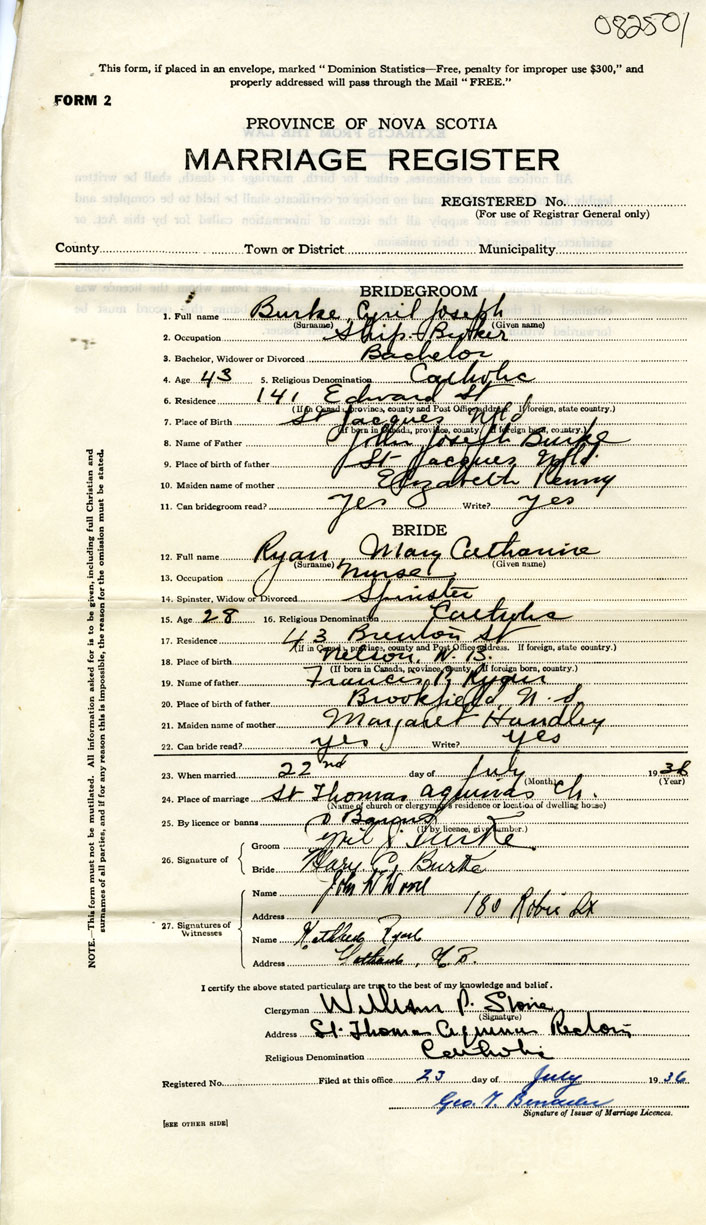 082501
This form, if placed in an envelope, marked "Dominion Statistics—Free, penalty for improper use $300," and
properly addressed will pass through the Mail "FREE."
FORM 2
PROVINCE OF NOVA SCOTIA
MARRIAGE REGISTER
REGISTERED No.
(For use of Registrar General only)
County Town or District Municipality
BRIDEGROOM
1. Full name Burke, Cyril Joseph
(Surname) (Given name)
2. Occupation Ship
3. Bachelor, Widower or Divorced Bachelor
4. Age 43 5. Religious Denomination Catholic
6. Residence 141 Edward St
(If in Canada, province, county and Post Office address. If foreign, state country.)
7. Place of Birth St Jacques Nfld
(If born in Canada, province, county. If foreign born, country.)
8. Name of Father John Joseph Burke
9. Place of birth of father St Jacques Nfld.
10. Maiden name of mother Elizabeth Penny
11. Can bridegroom read? Yes Write? Yes
BRIDE
12. Full name Ryan, Mary Catharine
(Surname) (Given name)
13. Occupation Nurse
14. Spinster, Widow or Divorced Spinster
15. Age 28 16. Religious Denomination Catholic
17. Residence 43 Brenton St
(If in Canada, province, county and Post Office address. If foreign, state country.)
18. Place of birth Nelson, N.B.
(If born in Canada, province, county. If foreign born, country.)
19. Name of father Francis P. Ryan
20. Place of birth of father Brookfield, N.S
21. Maiden name of mother Margaret Handley
22. Can bride read? yes Write? yes
23. When married 22nd day of July 1936
(Month) (Year)
24. Place of marriage St Thomas Aquinas Ch.
(Name of church or clergyman's residence or location of dwelling house)
25. By licence or banns Banns
(If by licence, give number.)
26. Signature of
Groom Cyril J. Burke
Bride Mary C. Burke
27. Signatures of
Witnesses
Name John W
Address 180 Robie St
Name Kathleen Ryan
Address N.B.
I certify the above stated particulars are true to the best of my knowledge and belief.
Clergyman William P. Stone
(Signature)
Address St. Thomas Aquinas Rectory
Religious Denomination Catholic
Registered No. Filed at this office 23 day of July 1936
Geo. T.
Signature of Issuer of Marriage Licences.
[SEE OTHER SIDE]
NOTE.—This form must not be mutilated. All information asked for is to be given, including full Christian and
surnames of all parties, and if for any reason this is impossible, the reason for the omission must be stated.